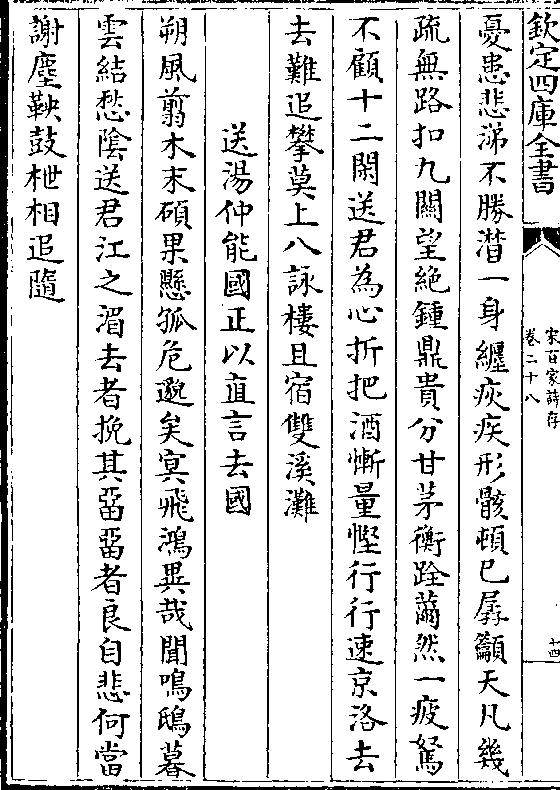 欽定四庫全書
宋百家詩存
卷二十八
十四
憂患悲涕不勝潸一身纏疢疾形骸頓已孱籲天凡幾
疏無路扣九關望絕鍾鼎貴分甘茅衡跧薾然一疲駑
不顧十二閑送君為心折把酒慚量慳行行速京洛去
去難追攀莫上八詠樓且宿雙溪灘
送湯仲能國正以直言去國
朔風翦木末碩果懸孤危邈矣冥飛鴻異哉聞鳴鴟暮
雲結愁陰送君江之湄去者挽其畱畱者良自悲何當
謝塵鞅鼓枻相追隨